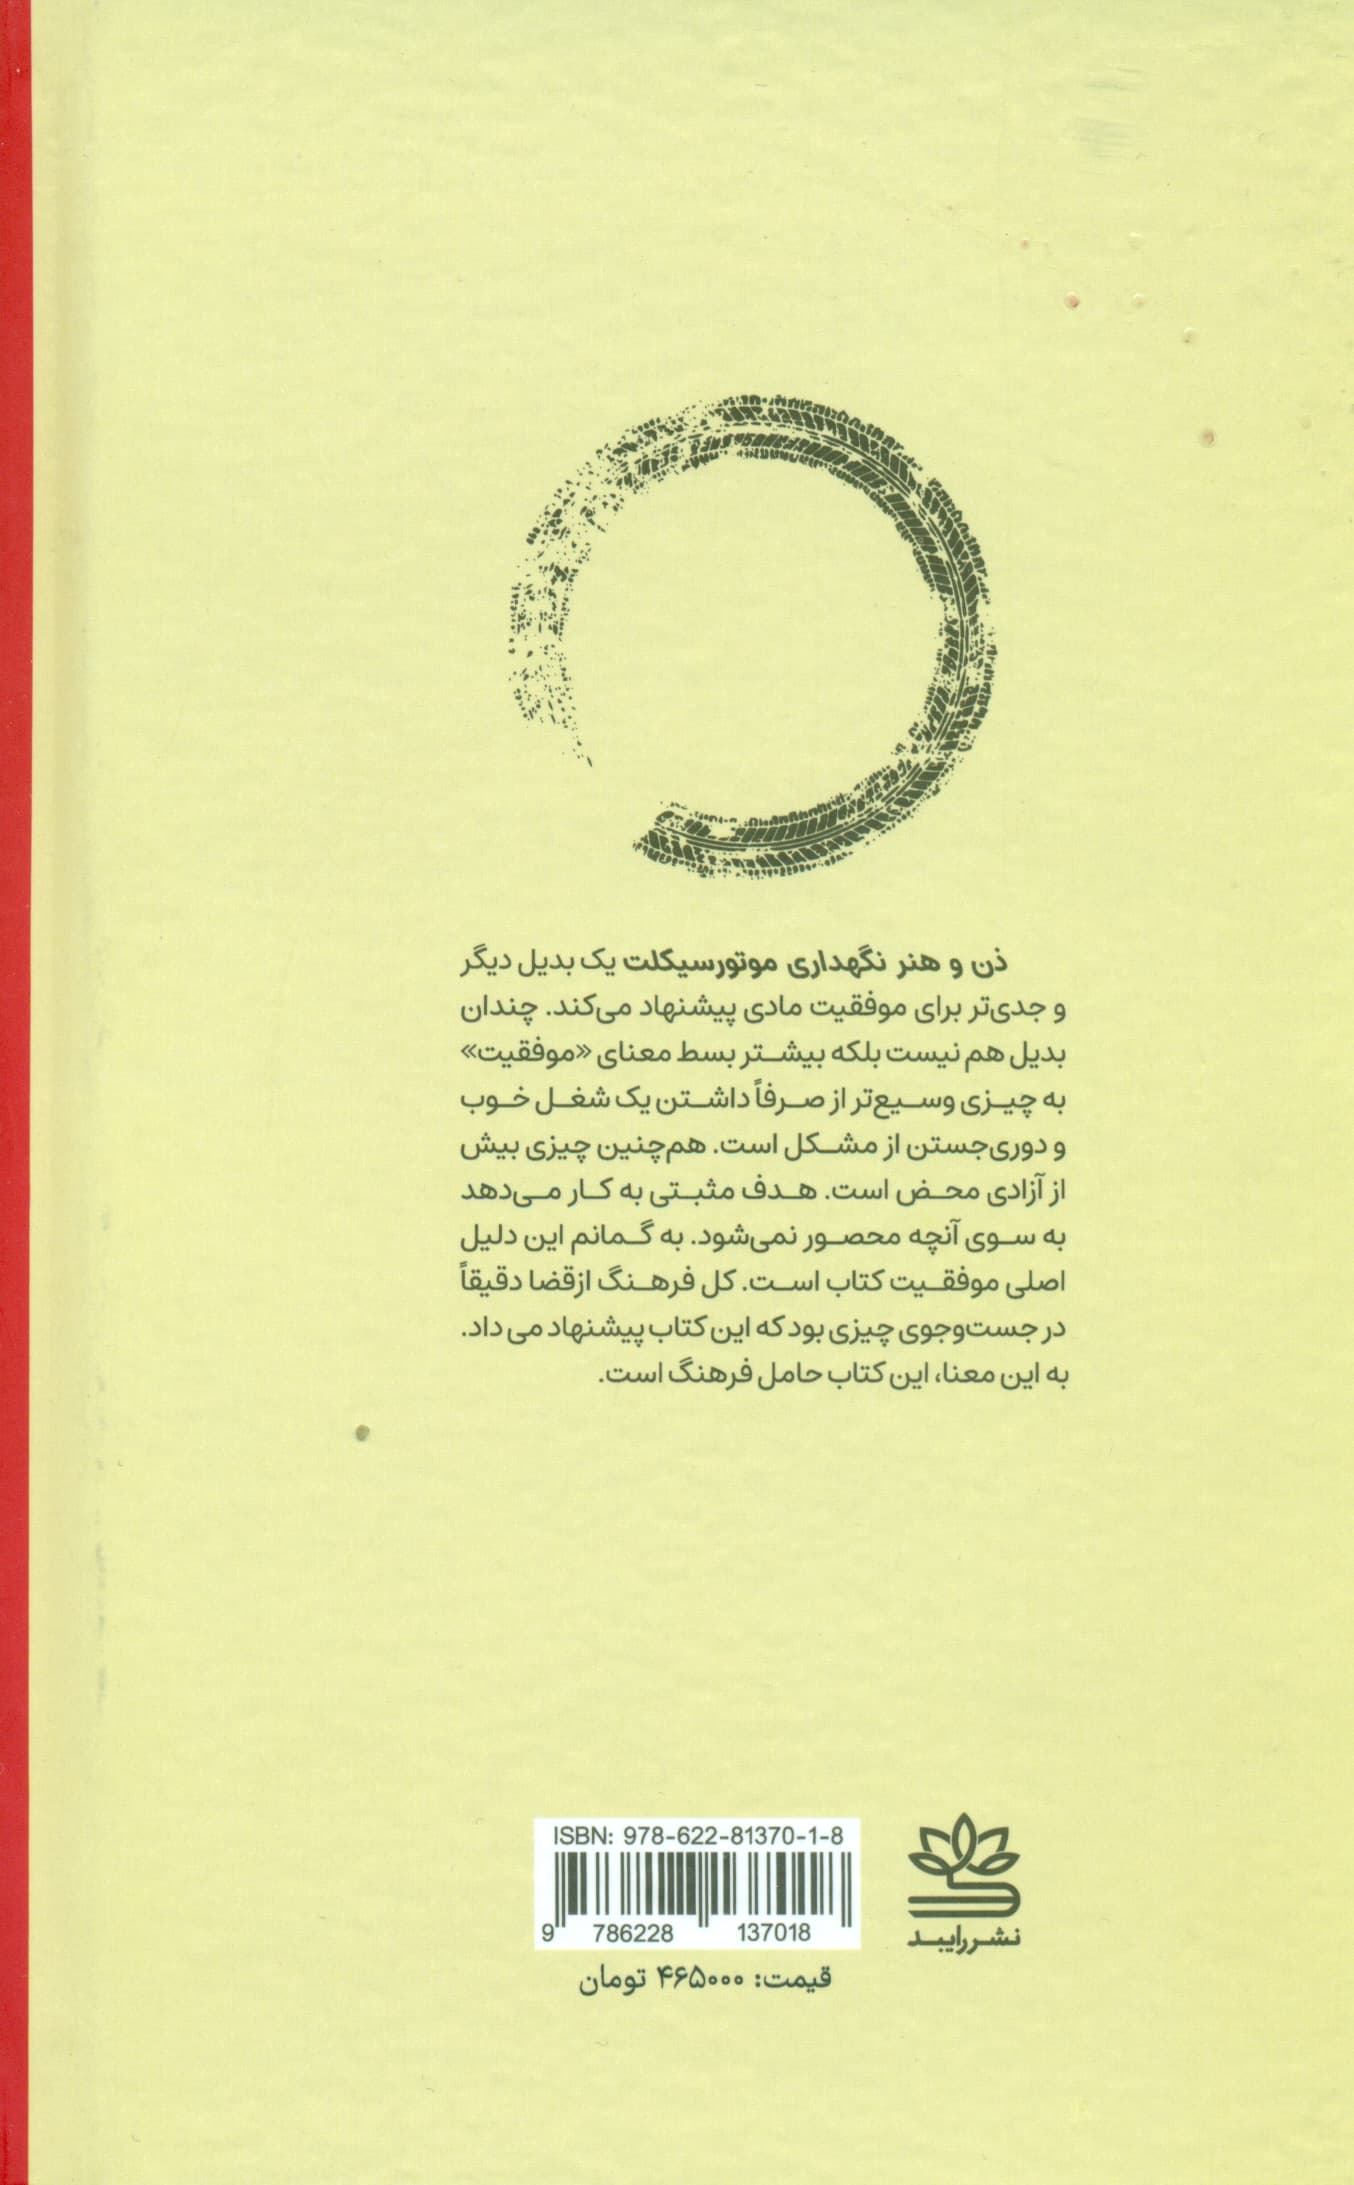 ذن و هنر نگهداری موتورسیکلت یک بدیل دیگر
و جدی‌تر برای موفقیت مادی پیشنهاد می‌کند. چندان
بدیل هم نیست بلکه بیشتر بسط معنای «موفقیت»
به چیزی وسیع‌تر از صرفاً داشتن یک شغل خوب
و دوری‌جستن از مشکل است. هم‌چنین چیزی بیش
از آزادی محض است. هدف مثبتی به کار می‌دهد
به سوی آنچه محصور نمی‌شود. به گمانم این دلیل
اصلی موفقیت کتاب است. کل فرهنگ ازقضا دقیقاً
در جست‌وجوی چیزی بود که این کتاب پیشنهاد می داد.
به این معنا، این کتاب حامل فرهنگ است.
ISBN: 978-622-81370-1-8
9 786228 137018
نشر رایبد
قیمت: ۴۶۵۰۰۰ تومان